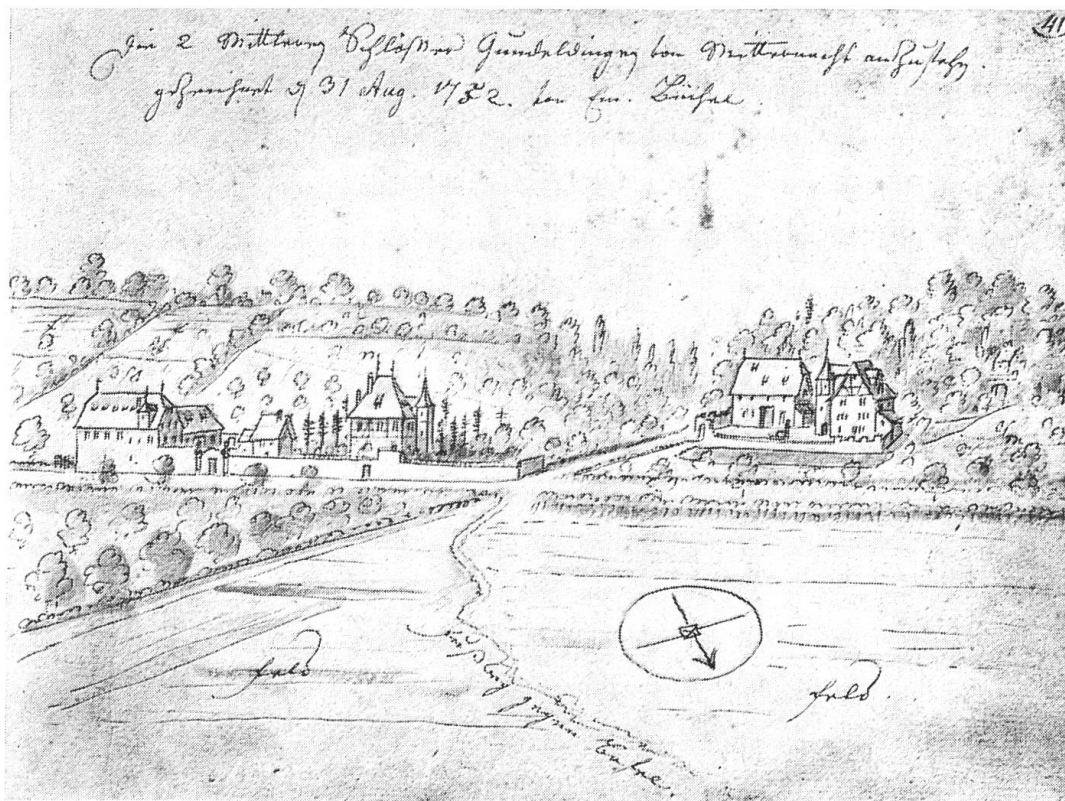 41
Die 2 Mittlern Schlösser Gundeldingen von Mitternacht anzusehn.
gezeichnet d 31 Aug. 1752. von Em. Büchel.
feld
Fußweg gegen Basel.
feld.